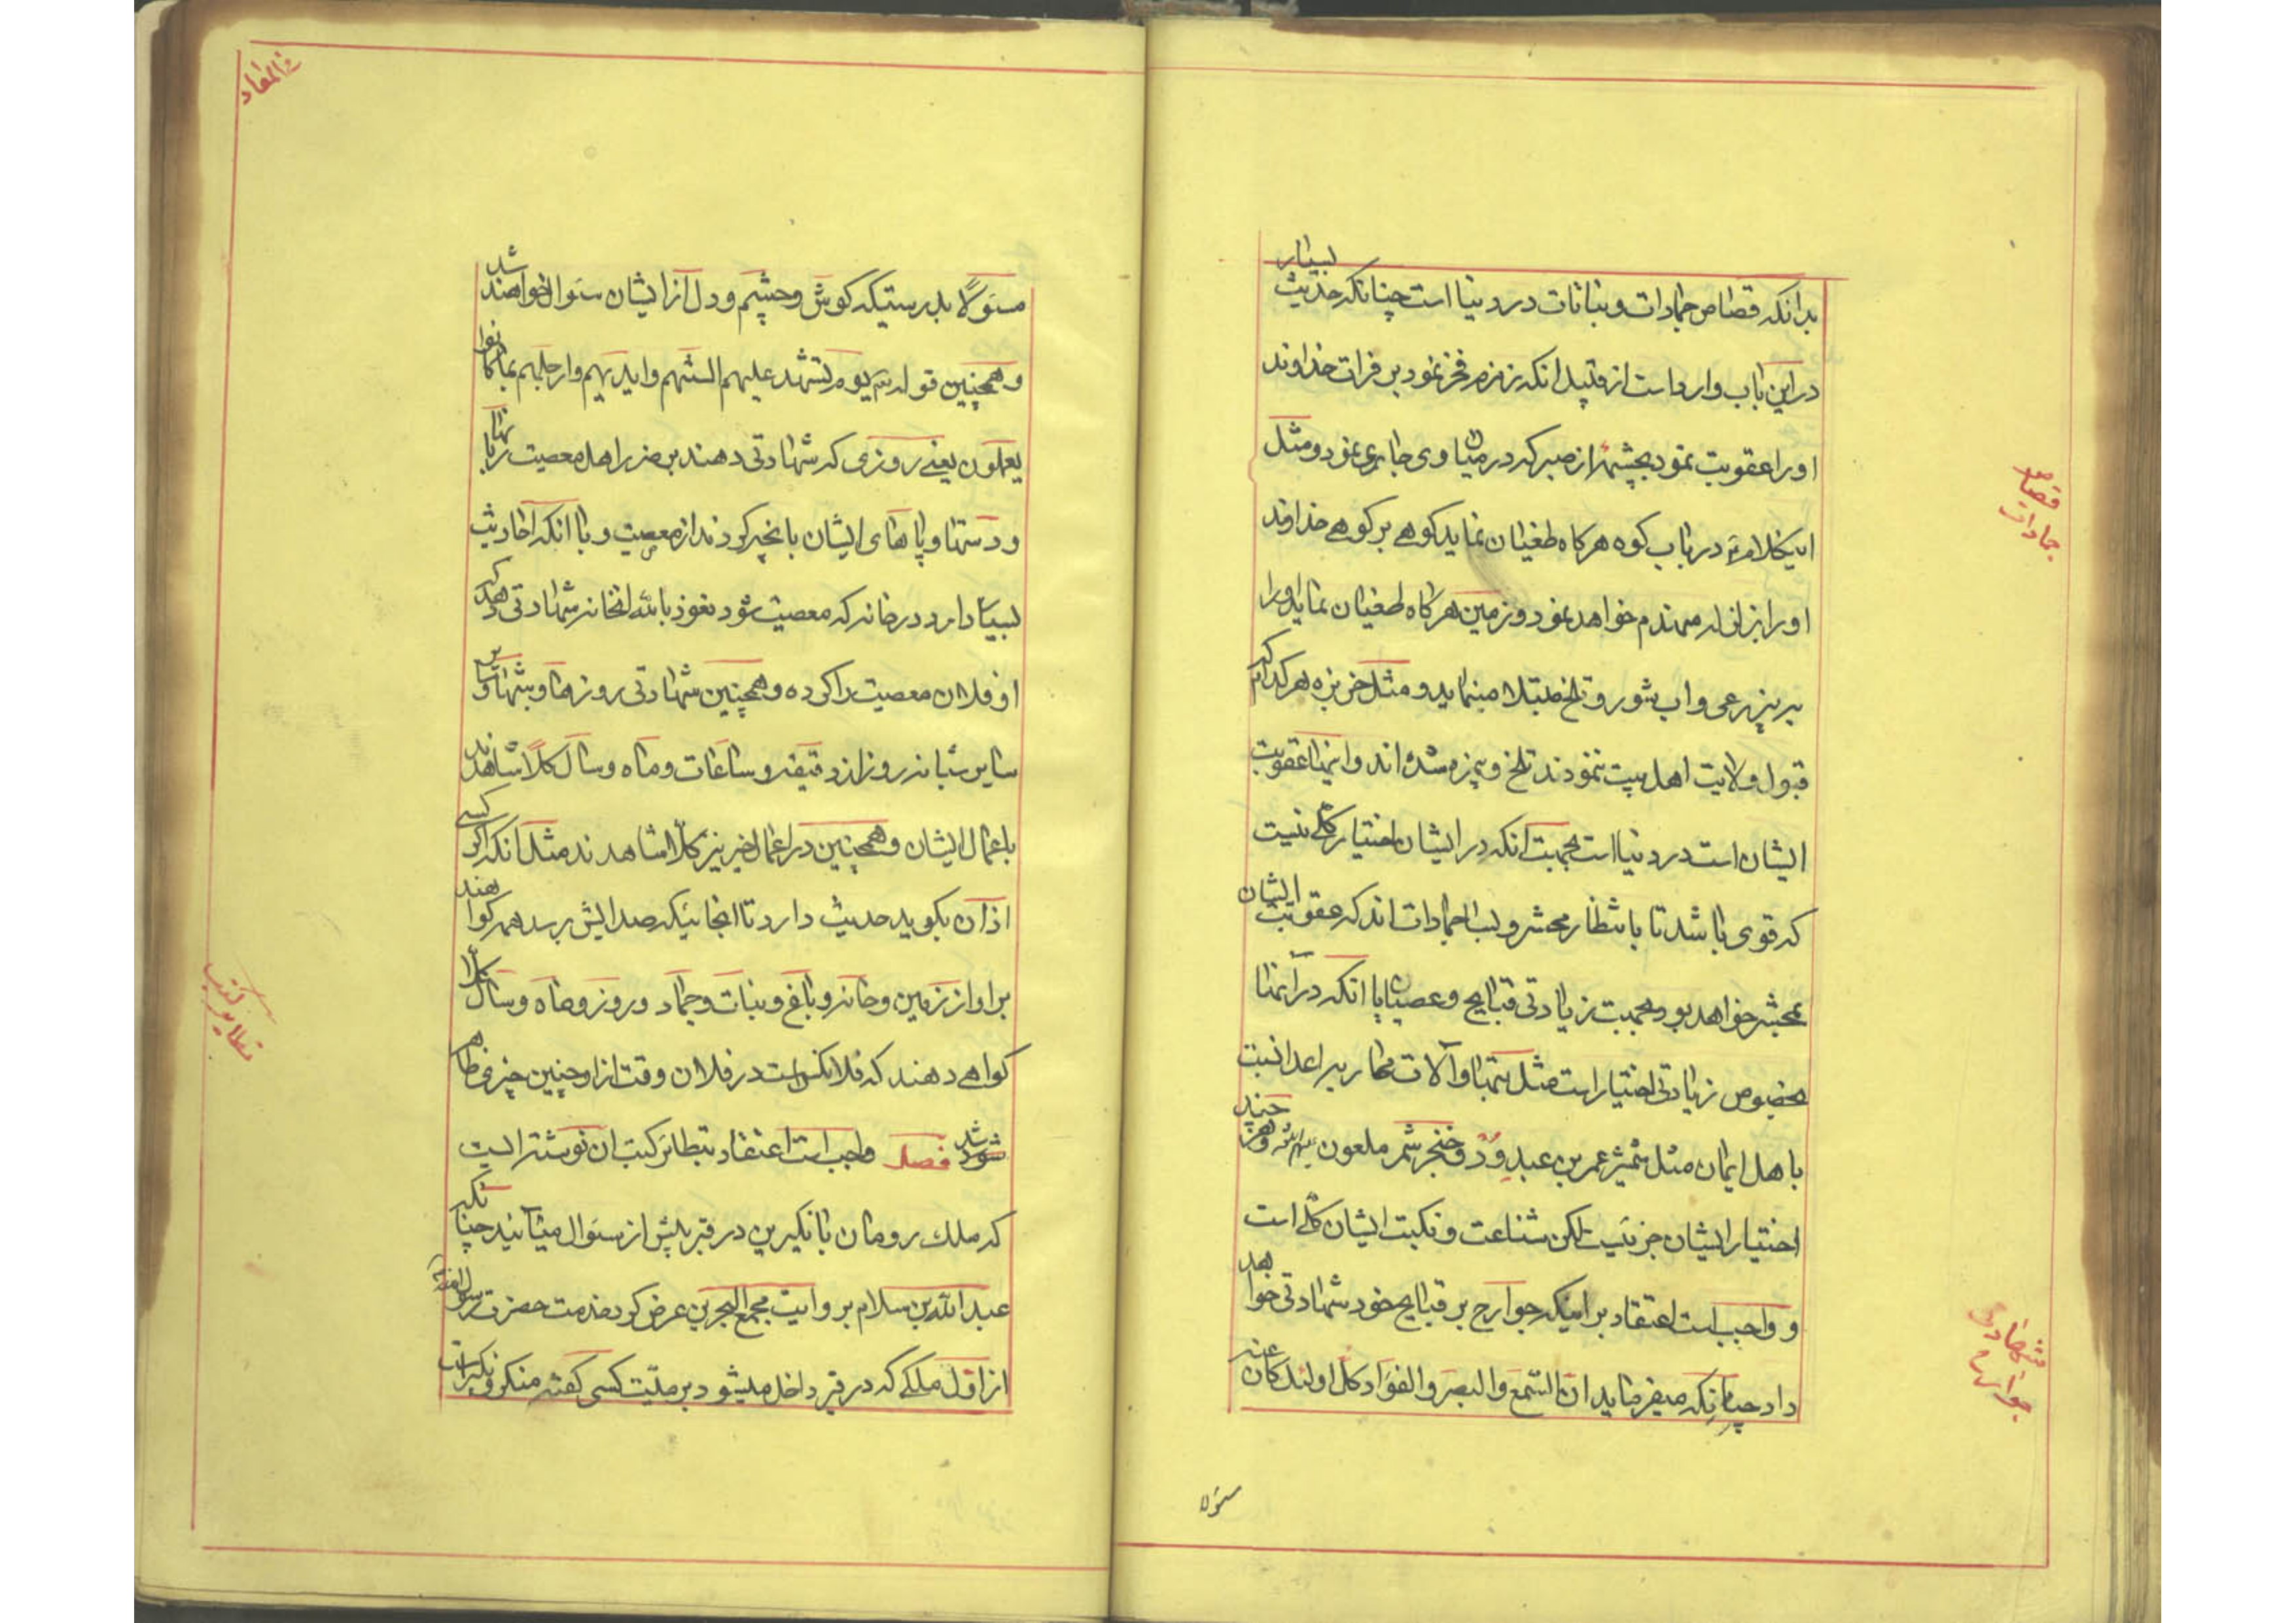 بدانکه قصاص جمادات و نباتات در دنیا است چنانکه حدیث بسیار
در این باب وارد است از قبیل انکه زمزم فخر نمود بر فرات خداوند
اورا عقوبت نمود بچشمهٔ از صبر که در میان وی جاری نمود و مثل
اینکلام در باب کوه هرکاه طغیان نماید کوهی بر کوهی خداوند
اورا منهدم خواهد نمود و زمین هرکاه طغیان نماید اورا
و اب شور و تلخ مبتلا مینماید و مثل خربزه هر کدام که
قبول ولایت اهل بیت ننمودند تلخ و بیمزه شده اند و اینها عقوبت
ایشان است در دنیا است بجهت انکه در ایشان اختیار کلی نیست
که قوی باشد تا بانتظار محشر و بسا جمادات اند که عقوبت ایشان
بمحشر خواهد بود بجهت زیادتی قبایح و عصیان یا انکه در آنها
بخصوص زیادتی اختیار است مثل بتها و آلات محاربه اعدا نسبت
باهل ایمان مثل شمشیر عمر بن عبد ود و خنجر شمر ملعون و هر چند
اختیار ایشان جزئیست لکن شناعت و نکبت ایشان کلی است
و واجب است اعتقاد بر اینکه جوارح بر قبایح خود شهادتی خواهد
داد چنانکه میفرماید ان السّمع و البصر و الفؤاد کل اولئک کان عنه
مسئولا
قصاص
جمادات
شهادت
جوارح
فی المعاد
مسئولًا بدرستیکه کوش و چشم و دل از ایشان سئوال خواهند شد
و همچنین قوله تع یوم تشهد علیهم السنتهم و ایدیهم و ارجلهم بما کانوا
یعملون یعنی روزی که شهادتی دهند بر ضرر اهل معصیت زبانها
و دستها و پاهای ایشان بانچه کردند از معصیت و با انکه احادیث
بسیار دارد در خانه که معصیت شود نعوذ بالله انخانه شهادتی دهد که
فلان معصیت را کرده و همچنین شهادتی روزها و شبها و
سایر شبانه روز از دقیقه و ساعات و ماه و سال کلًا شاهدند
باعمال ایشان و همچنین در اعمال خیر نیز کلًا شاهدند مثل انکه اگر کسی
اذان بکوید حدیث دارد تا انجائیکه صدایش برسد همه کواهند
بر او از زمین و خانه و باغ و نبات و جماد و روز و ماه و سال کلًا
کواهی دهند که فلانکس است در فلان وقت از او چنین چیزی ظاهر
شد فصل واجب است اعتقاد بتطایر کتب ان نوشته ایست
که ملک رومان با نکیرین در قبر پیش از سئوال میآیند چنانکه
عبد الله بن سلام بروایت مجمع البحرین عرض کرد خدمت حضرت رسول الله
از اول ملکی که در قبر داخل میشود بر میّت کسی کفته منکر و نکیر است
تطایر کتب